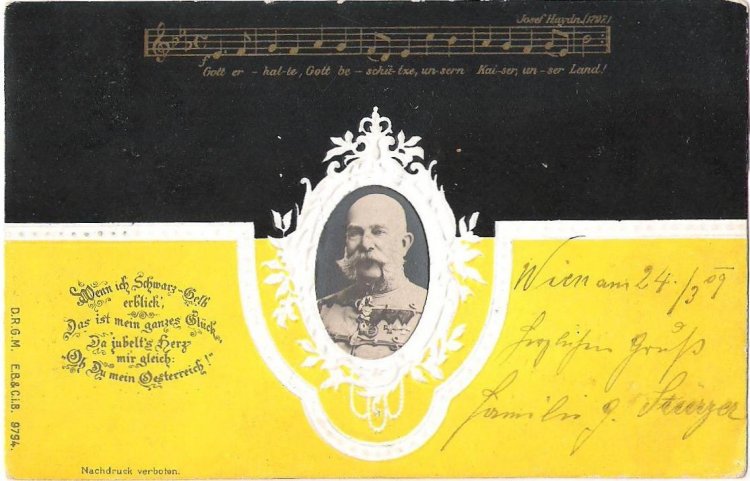 Josef Haydn (1797.)
Gott er - hal - te, Gott be - schü - tze, un - sern Kai - ser, un - ser Land!
Wenn ich Schwarz-Gelb
erblick',
Das ist mein ganzes Glück
Da jubelt's Herz
mir gleich:
"Oh Du mein Oesterreich!"
Wien am 24./3 09
Herzlichen Gruß
Familie
D.R.G.M. E.B.&C.i.B. 9794.
Nachdruck verboten.